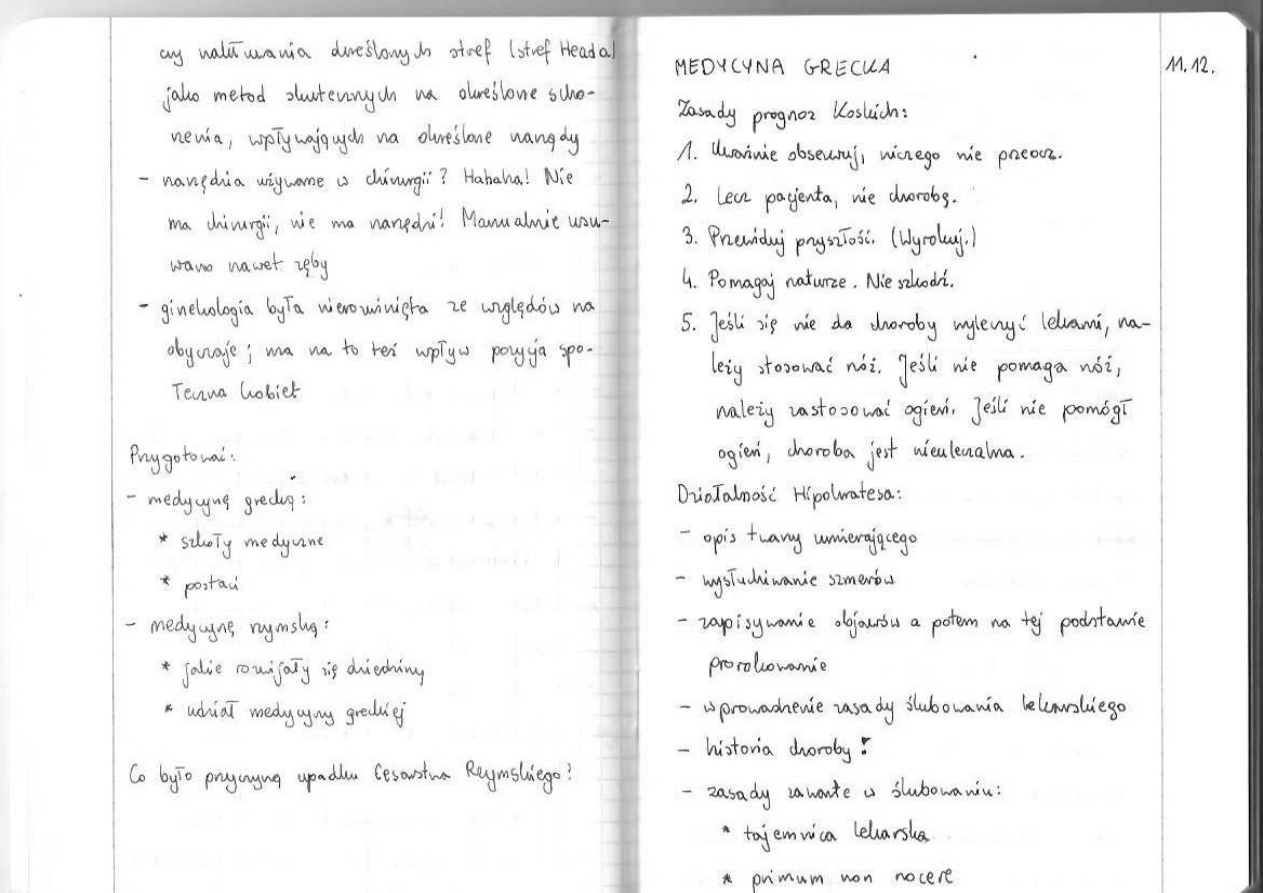 czy nakłuwania określonych stref (stref Heada)
jako metod skutecznych na określone scho-
rzenia, wpływających na określone narządy
- narzędzia używane w chirurgii? Hahaha! Nie
ma chirurgii, nie ma narzędzi! Manualnie usu-
wano nawet zęby
- ginekologia była nierozwinięta ze względów na
obyczaje; ma na to też wpływ pozycja spo-
łeczna kobiet
Przygotować:
- medycynę grecką:
* szkoły medyczne
* postaci
- medycynę rzymską:
* jakie rozwijały się dziedziny
* udział medycyny greckiej
Co było przyczyną upadku Cesarstwa Rzymskiego?
MEDYCYNA GRECKA
11.12.
Zasady prognoz Koskich:
1. Uważnie obserwuj, niczego nie przeocz.
2. Lecz pacjenta, nie chorobę.
3. Przewiduj przyszłość. (Wyrokuj.)
4. Pomagaj naturze. Nie szkodź.
5. Jeśli się nie da choroby wyleczyć lekami, na-
leży stosować nóż. Jeśli nie pomaga nóż,
należy zastosować ogień. Jeśli nie pomógł
ogień, choroba jest nieuleczalna.
Działalność Hipokratesa:
- opis twarzy umierającego
- wysłuchiwanie szmerów
- zapisywanie objawów a potem na tej podstawie
prorokowanie
- wprowadzenie zasady ślubowania lekarskiego
- historia choroby!
- zasady zawarte w ślubowaniu:
* tajemnica lekarska
* primum non nocere